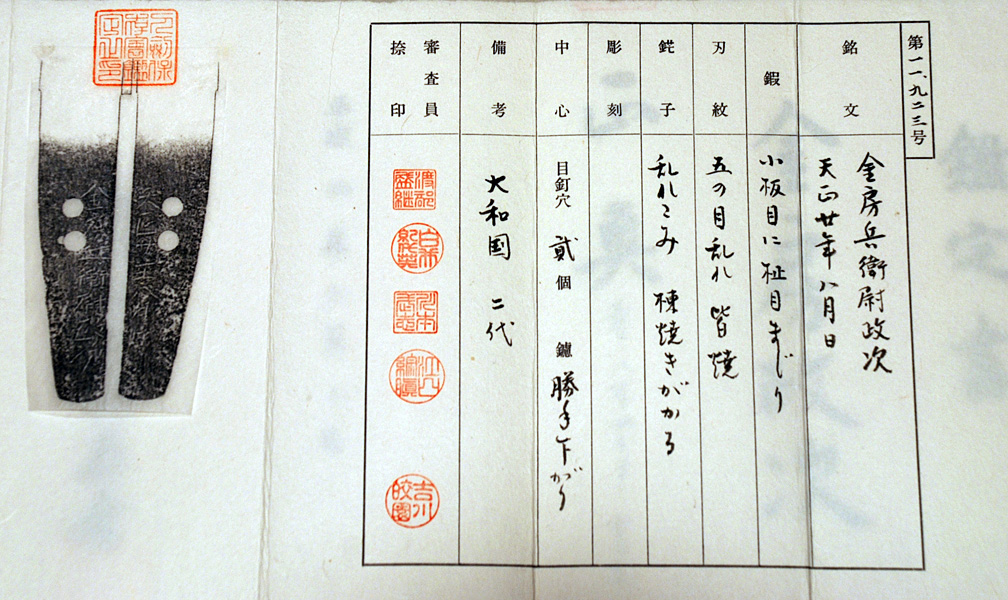 第一一、九二三号
銘文
金房兵衛尉政次
天正廿年八月日
鍜
小板目に柾目まじり
刃紋
五の目乱れ 皆焼
鋩子
乱れこみ 棟焼きがかる
彫刻
中心
目釘穴 貳 個 鑢 勝手下がり
備考
大和国 二代
審査員
捺印
渡部
吉川
皎園